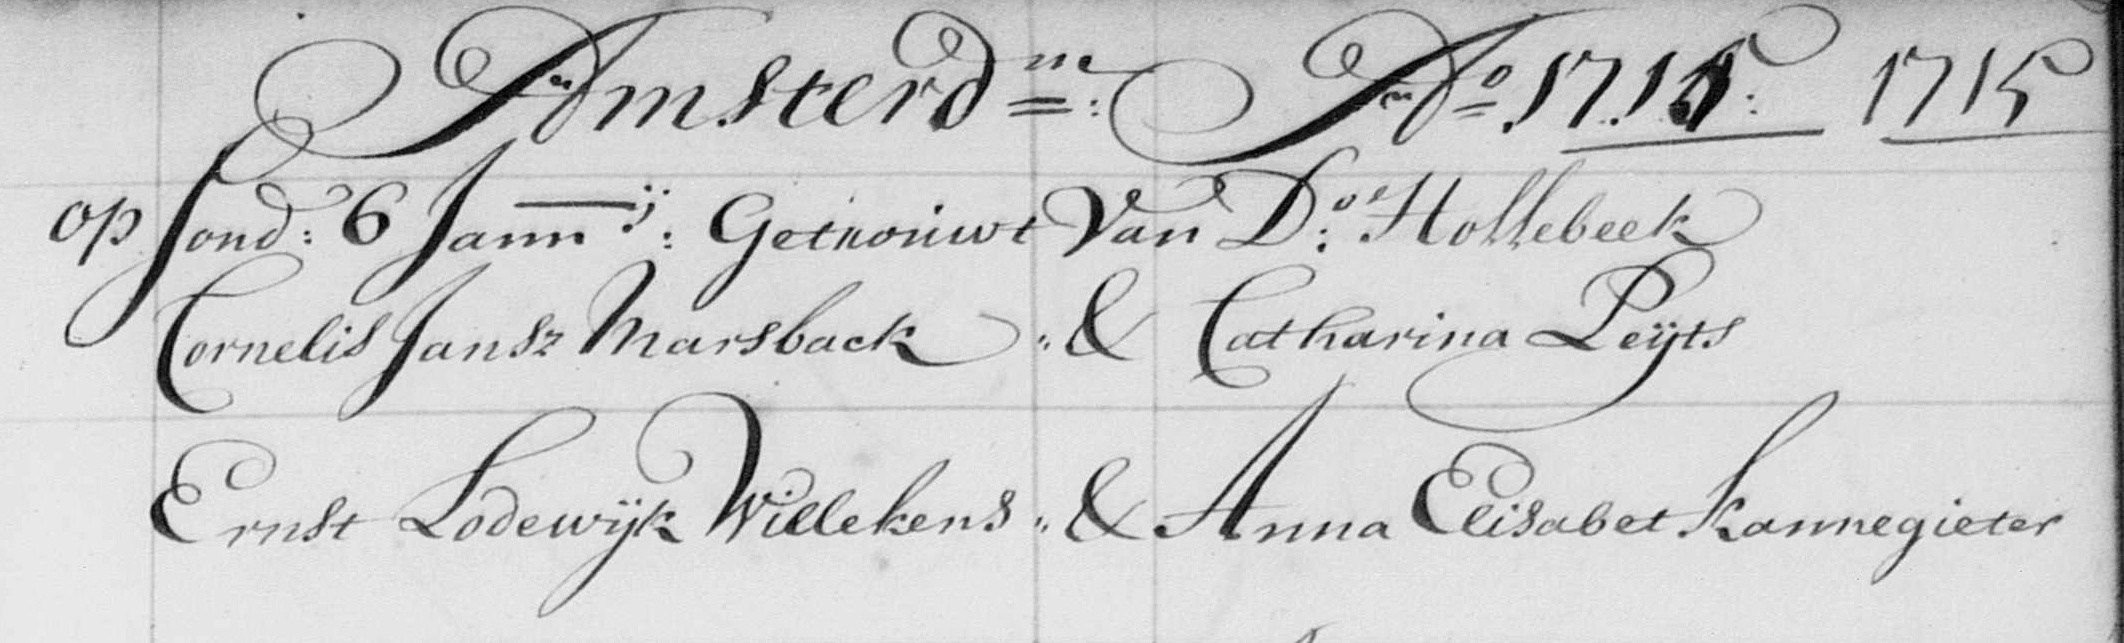 Amsterd=m: Ao. 1715: 1715
op Sond: 6 Jannij: Getrouwt Van Do: Hollebeek
Cornelis Jansz Marsback :& Catharina Peijts
Ernst Lodewijk Willekens :& Anna Elisabet Kannegieter